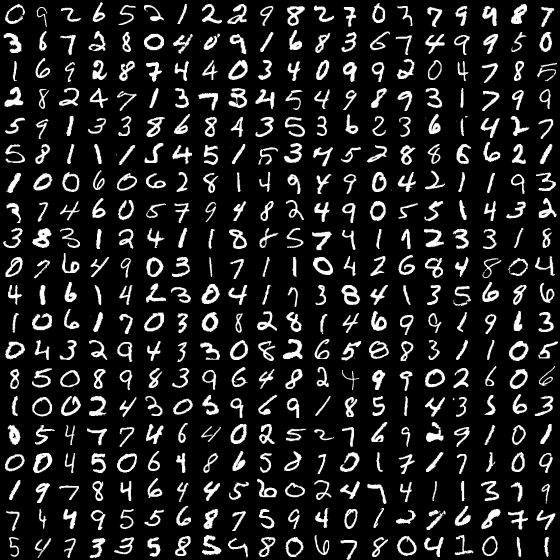 0 9 2 6 5 2 1 2 2 9 8 2 7 0 7 7 9 9 8 7
3 6 7 2 8 0 4 0 9 1 6 8 3 6 7 4 9 9 5 0
1 6 9 2 8 7 4 4 0 3 4 0 9 9 2 0 4 7 8 5
2 8 2 4 7 1 3 7 3 4 5 4 9 8 9 3 1 7 9 9
5 9 1 3 3 8 6 8 4 3 5 3 6 2 3 6 1 4 2 7
5 8 1 1 1 5 4 5 1 5 3 4 5 2 8 8 6 6 2 1
1 0 0 6 0 6 2 8 1 4 9 4 9 0 4 2 1 1 9 3
3 7 4 6 0 5 7 9 4 8 2 4 9 0 5 5 1 4 3 2
3 8 3 1 2 4 1 1 8 8 5 7 4 1 1 2 3 3 1 8
0 7 6 4 9 0 3 1 7 1 1 0 4 2 6 8 4 8 0 4
4 1 6 1 4 2 3 0 4 1 7 3 8 4 1 3 5 6 8 6
1 0 6 1 7 0 3 0 8 2 8 1 4 6 9 9 1 9 6 3
0 4 3 2 9 4 3 3 0 8 2 6 5 8 8 3 1 1 0 5
8 5 0 8 9 8 3 9 6 4 8 2 4 9 9 0 2 6 0 6
1 0 0 2 4 3 0 5 9 6 9 1 8 5 1 4 3 5 6 3
0 5 4 7 7 4 6 4 0 2 5 2 7 6 9 2 9 1 0 1
0 0 4 5 0 6 4 8 6 5 8 7 0 1 7 1 7 1 0 9
1 9 7 8 4 6 4 4 5 6 0 2 4 7 4 1 1 3 7 9
7 4 4 9 5 5 6 8 7 5 9 4 0 1 2 7 6 8 7 4
5 4 7 3 3 5 8 5 4 8 0 6 7 8 0 4 1 0 1 1